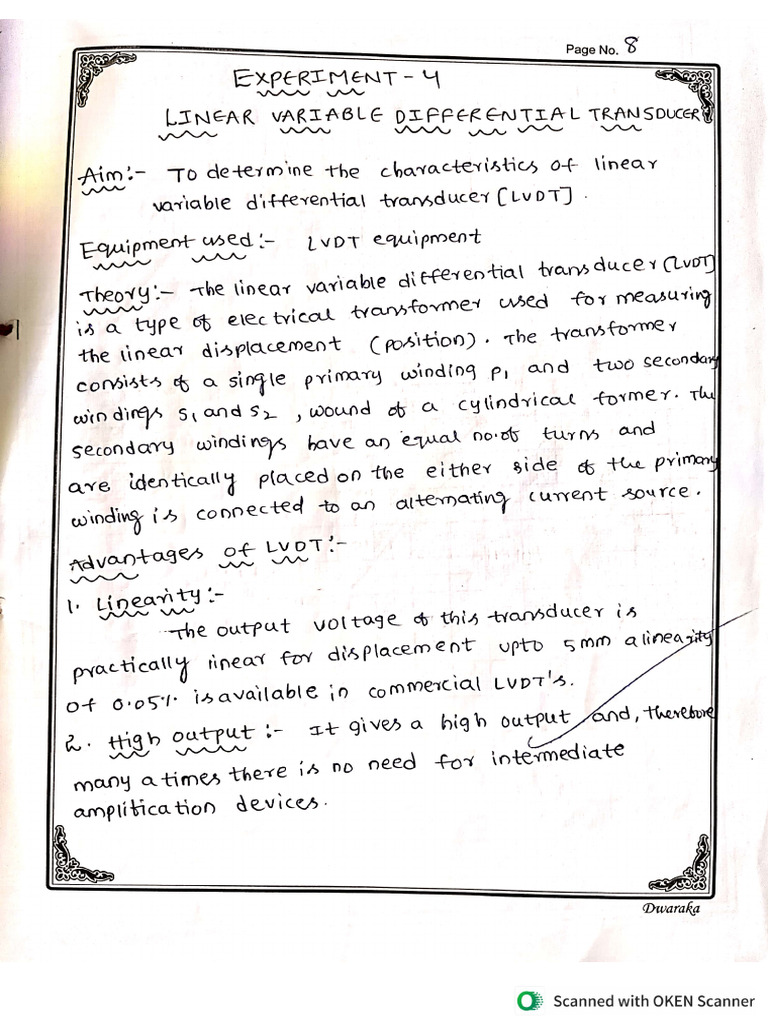 Page No. 8
EXPERIMENT-4
LINEAR VARIABLE DIFFERENTIAL TRANSDUCER
Aim:- To determine the characteristics of linear
variable differential transducer [LVDT].
Equipment used:- LVDT equipment
Theory:- The linear variable differential transducer (LVDT)
is a type of electrical transformer used for measuring
the linear displacement (position). The transformer
consists of a single primary winding P1 and two secondary
windings S1 and S2, wound of a cylindrical former. The
secondary windings have an equal no.of turns and
are identically placed on the either side of the primary
winding is connected to an alternating current source.
Advantages of LVDT:-
1. Linearity:-
The output voltage of this transducer is
practically linear for displacement upto 5mm a linearity
of 0.05% is available in commercial LVDT's.
2. High output:- It gives a high output and, therefore
many a times there is no need for intermediate
amplification devices.
Dwaraka
Scanned with OKEN Scanner